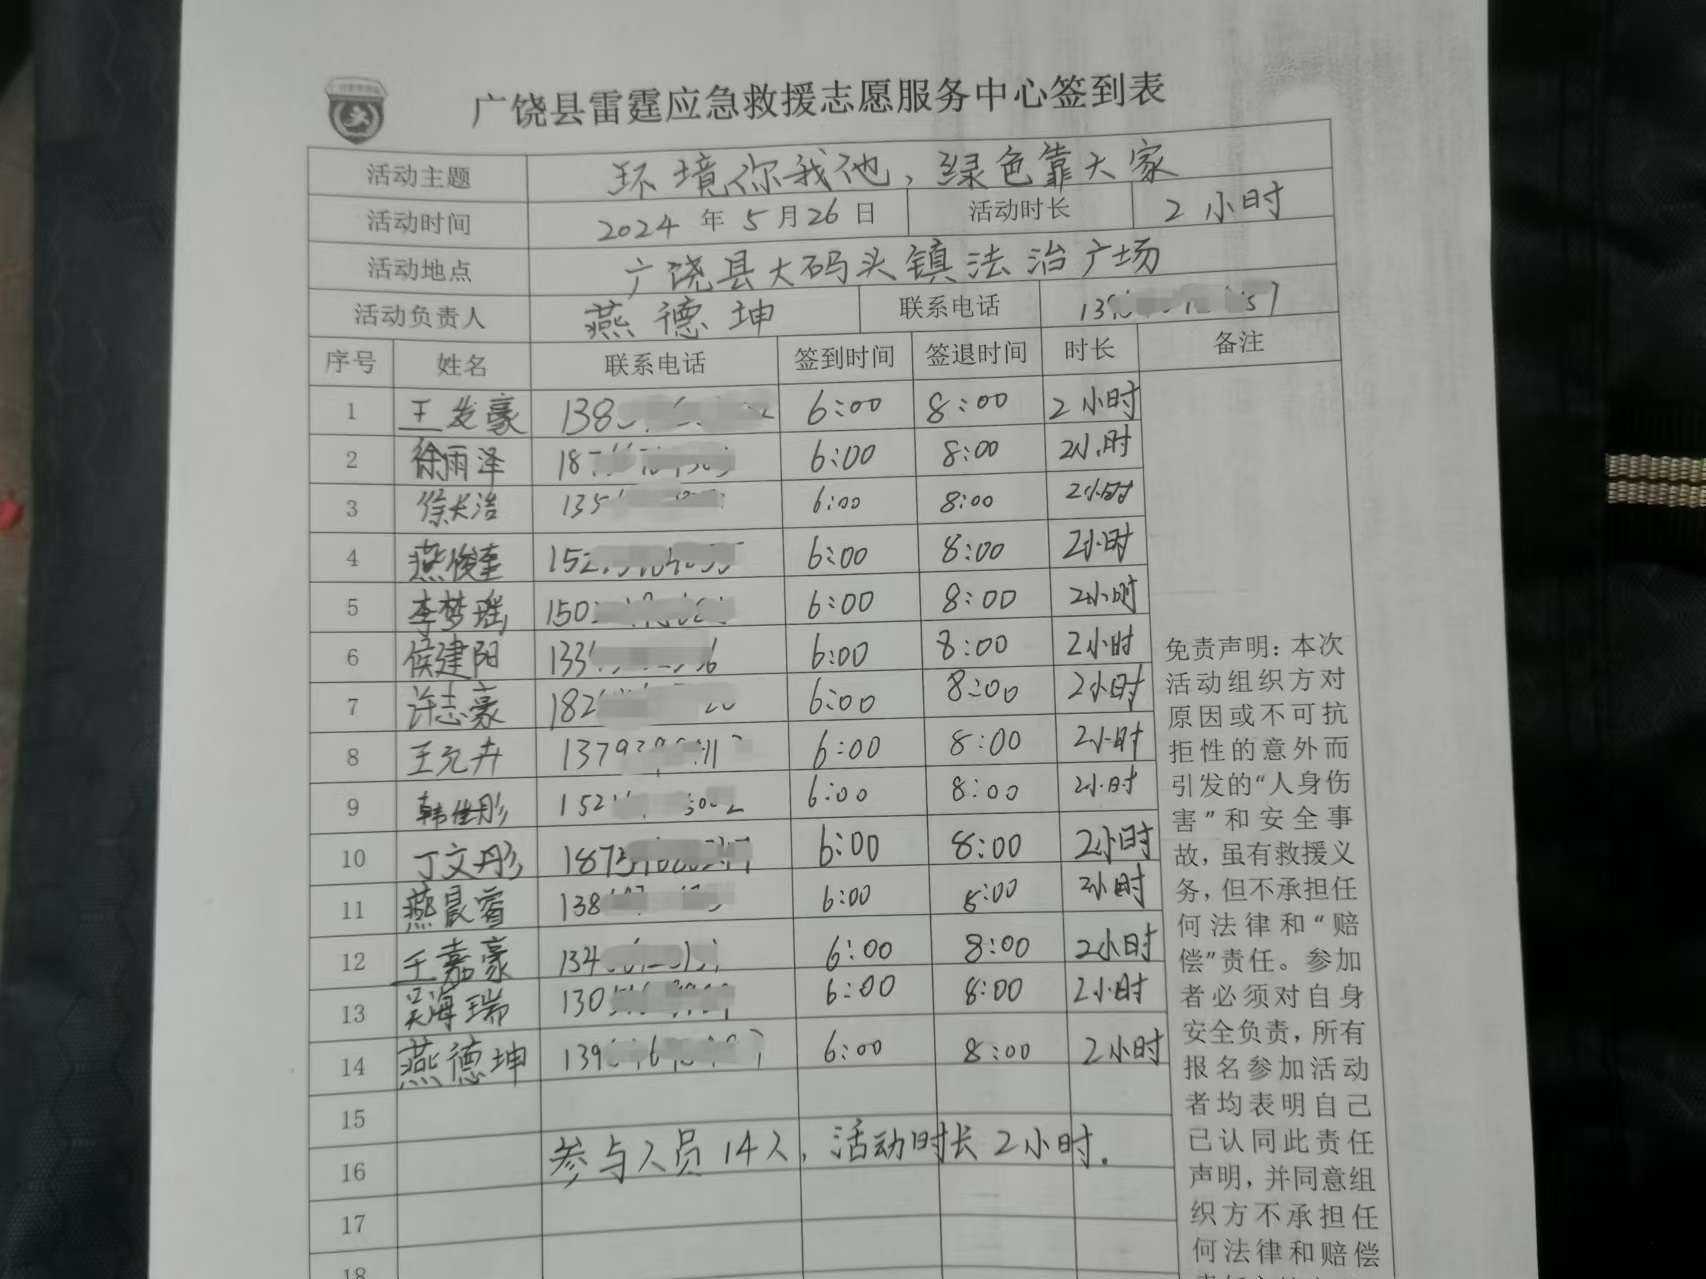 广饶县雷霆应急救援志愿服务中心签到表
活动主题 环境你我他，绿色靠大家
活动时间 2024年5月26日 活动时长 2小时
活动地点 广饶县大码头镇法治广场
活动负责人 燕德坤 联系电话
序号 姓名 联系电话 签到时间 签退时间 时长 备注
1 王发豪 138 6:00 8:00 2小时
2 徐雨泽 18 6:00 8:00 2小时
3 徐长治 135 6:00 8:00 2小时
4 燕俊奎 152 6:00 8:00 2小时
5 李梦瑶 150 6:00 8:00 2小时
6 侯建阳 133 6:00 8:00 2小时
7 许志豪 182 6:00 8:00 2小时
8 王元卉 1379 6:00 8:00 2小时
9 韩佳彤 152 6:00 8:00 2小时
10 丁文彤 1873 6:00 8:00 2小时
11 燕晨睿 138 6:00 8:00 2小时
12 王嘉豪 134 6:00 8:00 2小时
13 吴海瑞 130 6:00 8:00 2小时
14 燕德坤 139 6:00 8:00 2小时
15
16 参与人员14人，活动时长2小时.
17
18
免责声明：本次
活动组织方对
原因或不可抗
拒性的意外而
引发的“人身伤
害”和安全事
故，虽有救援义
务，但不承担任
何法律和“赔
偿”责任。参加
者必须对自身
安全负责，所有
报名参加活动
者均表明自己
已认同此责任
声明，并同意组
织方不承担任
何法律和赔偿